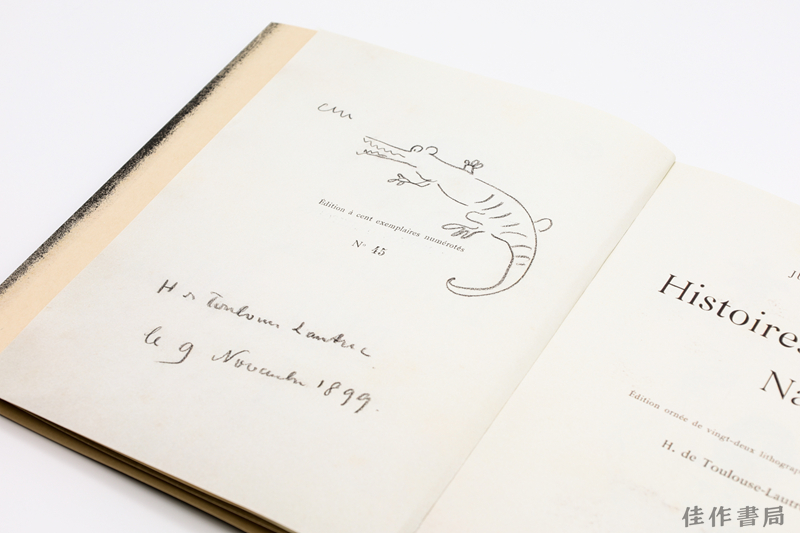 Édition à cent exemplaires numérotés
N° 45
H de Toulouse Lautrec
le 9 Novembre 1899.
Histoires
Na
Édition ornée de vingt-deux lithograp
H. de Toulouse-Lautr
佳作書局